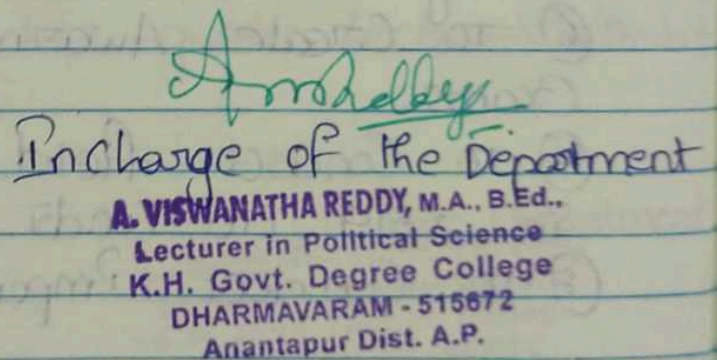 Incharge of the Department
A. VISWANATHA REDDY, M.A., B.Ed.,
Lecturer in Political Science
K.H. Govt. Degree College
DHARMAVARAM - 515672
Anantapur Dist. A.P.